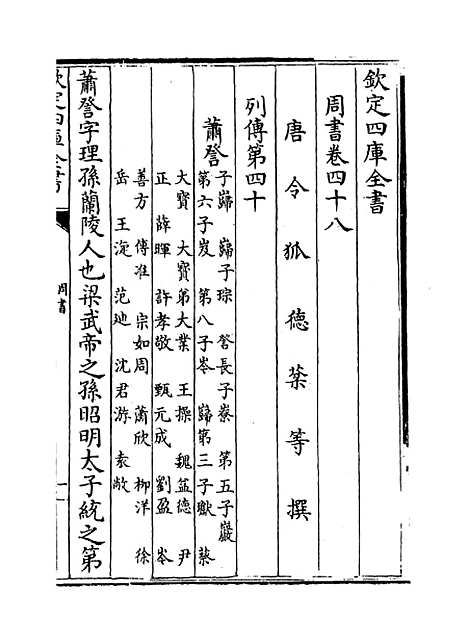 欽定四庫全書
周書卷四十八
唐令狐德棻等撰
列傳第四十
蕭詧
子巋 巋子琮 詧長子嶚 第五子巖
第六子岌 第八子岑 巋第三子瓛 蔡
大寶 大寶弟大業 王操 魏益德 尹
正 薛暉 許孝敬 甄元成 劉盈 岑
善方 傅准 宗如周 蕭欣 柳洋 徐
岳 王淀 范廸 沈君游 袁敞
蕭詧字理孫蘭陵人也梁武帝之孫昭明太子統之第
欽定四庫全書
周書
一